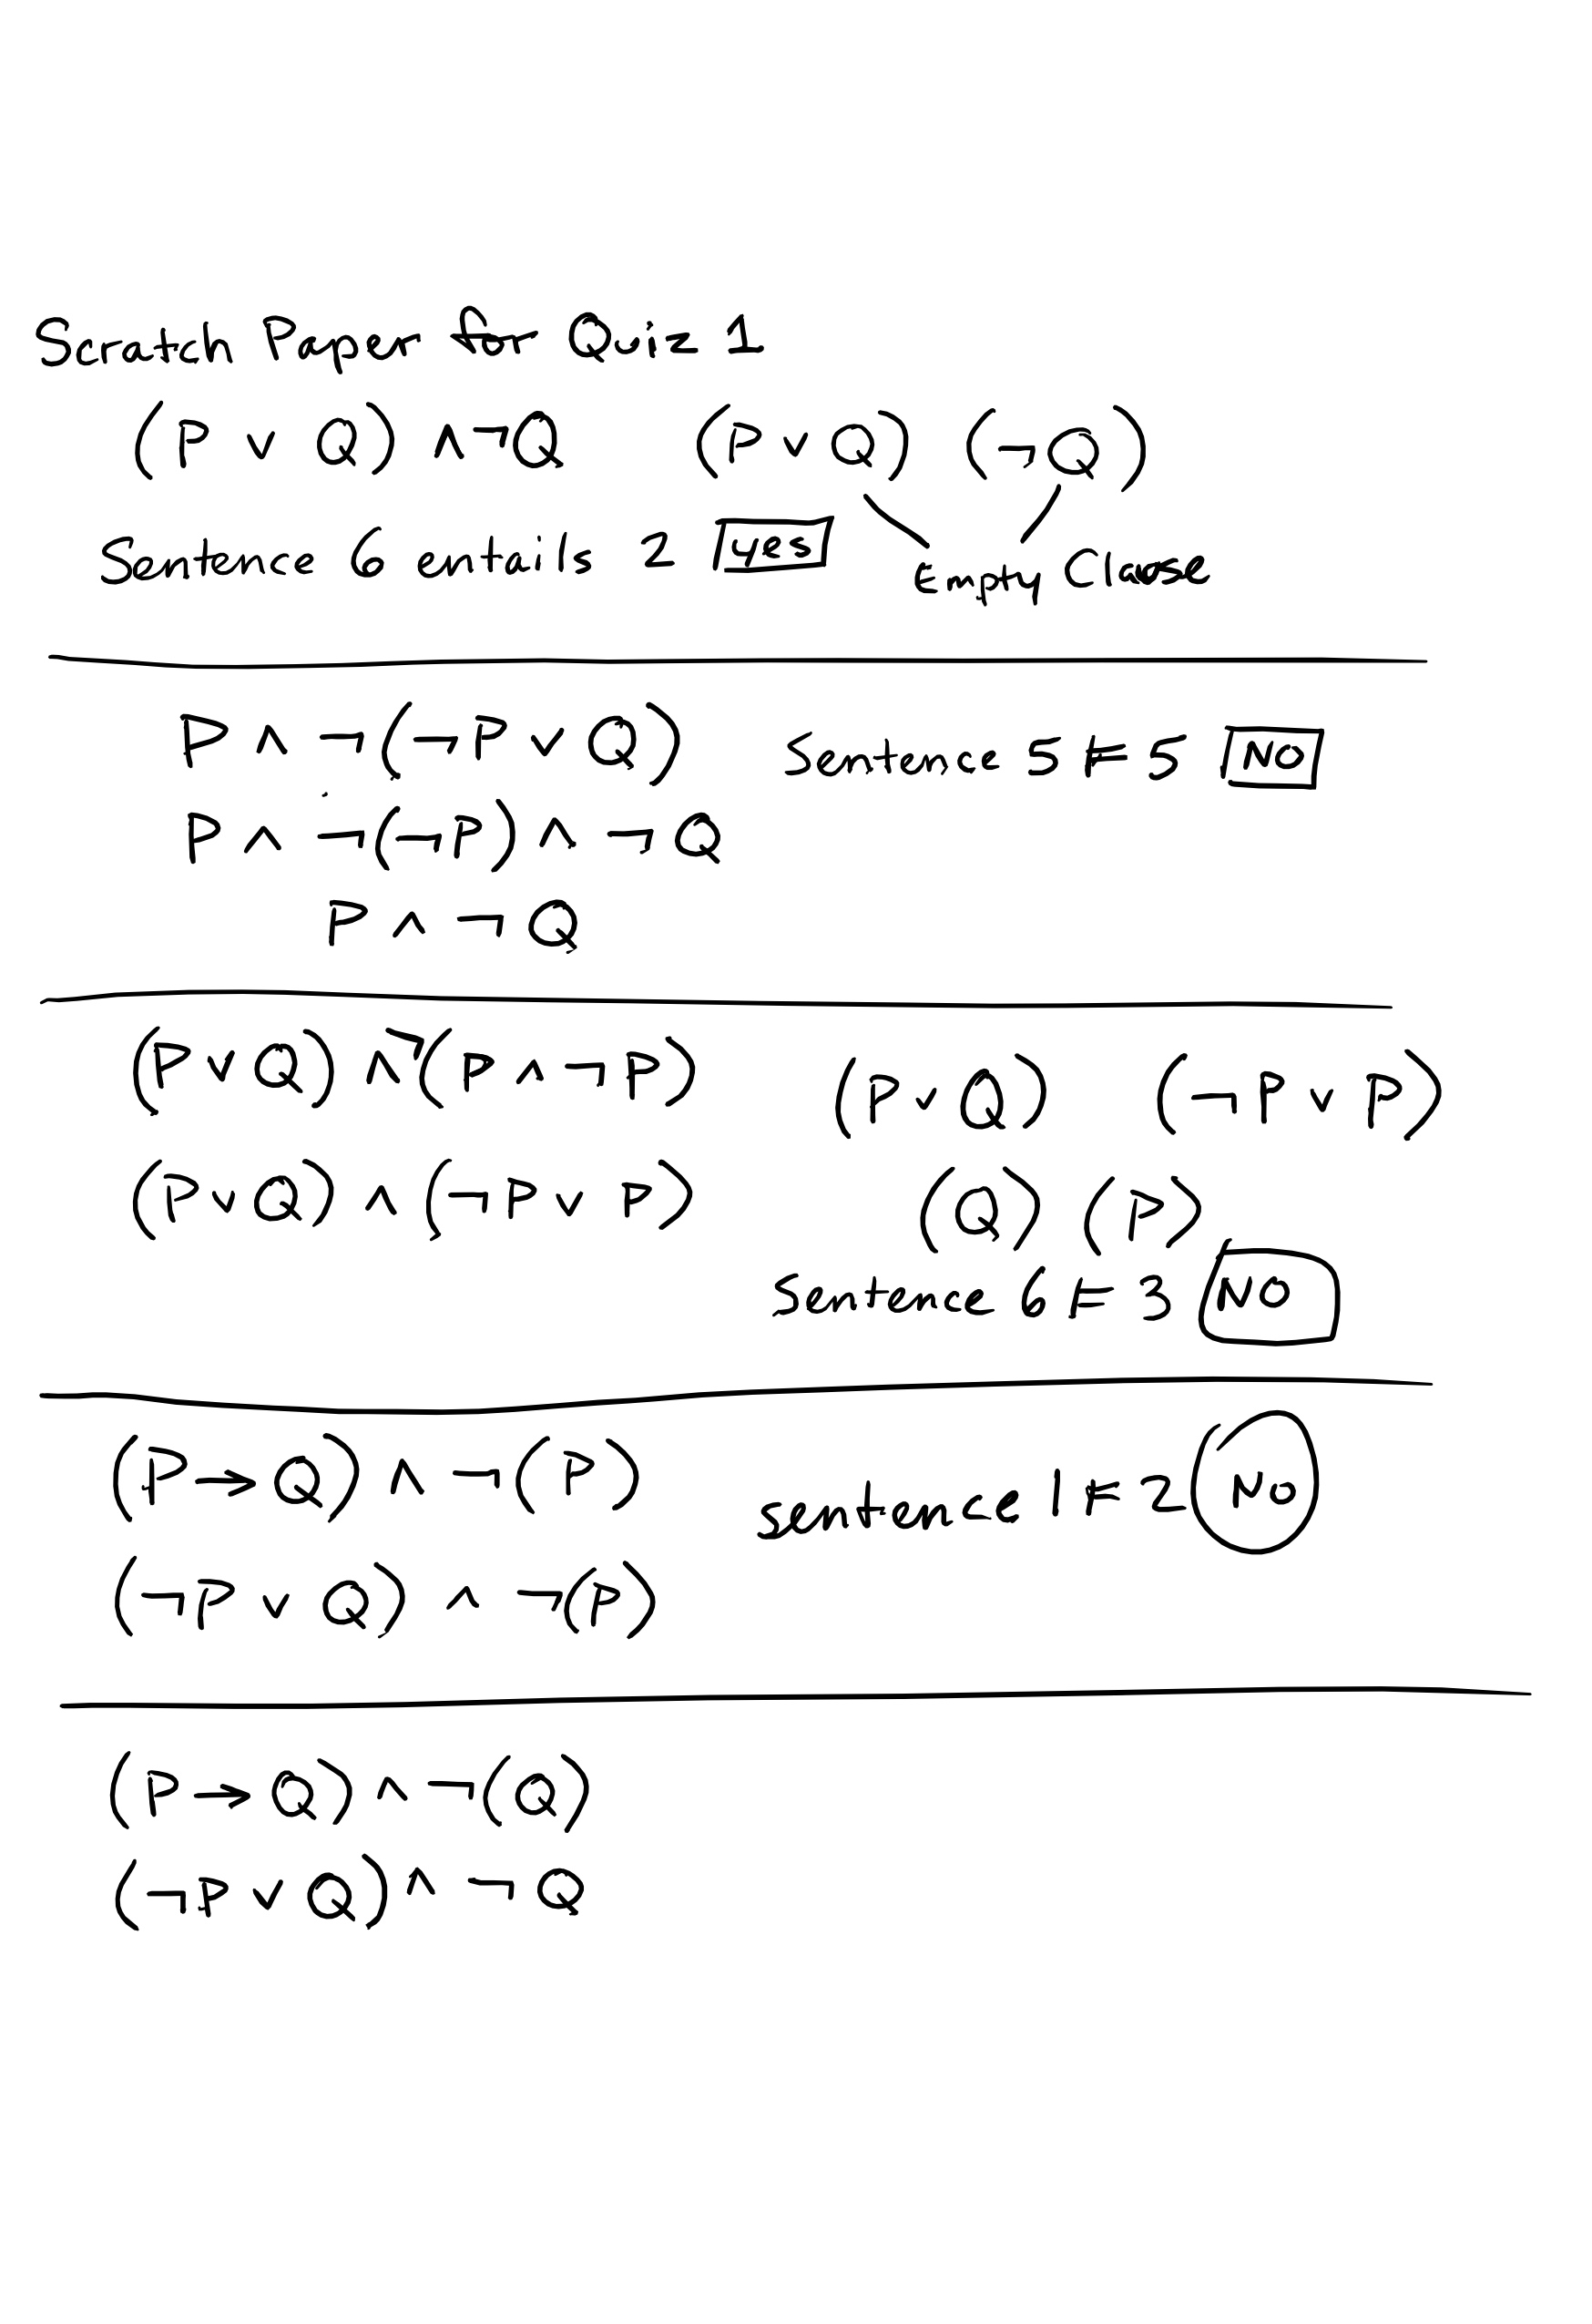 Scratch Paper for Quiz 1
(P ∨ Q) ∧ ¬Q (P ∨ Q) (¬Q)
Sentence 6 entails 2 Yes Empty Clause
P ∧ ¬(¬P ∨ Q) Sentence 5 ⊨ 5 No
P ∧ ¬(¬P) ∧ ¬Q
P ∧ ¬Q
(P ∨ Q) ∧ ¬(P ∧ ¬P) (P ∨ Q) (¬P ∨ P)
(P ∨ Q) ∧ (¬P ∨ P) (Q) (P)
Sentence 6 ⊨ 3 NO
(P → Q) ∧ ¬(P) sentence 1 ⊨ 2 No
(¬P ∨ Q) ∧ ¬(P)
(P → Q) ∧ ¬(Q)
(¬P ∨ Q) ∧ ¬Q